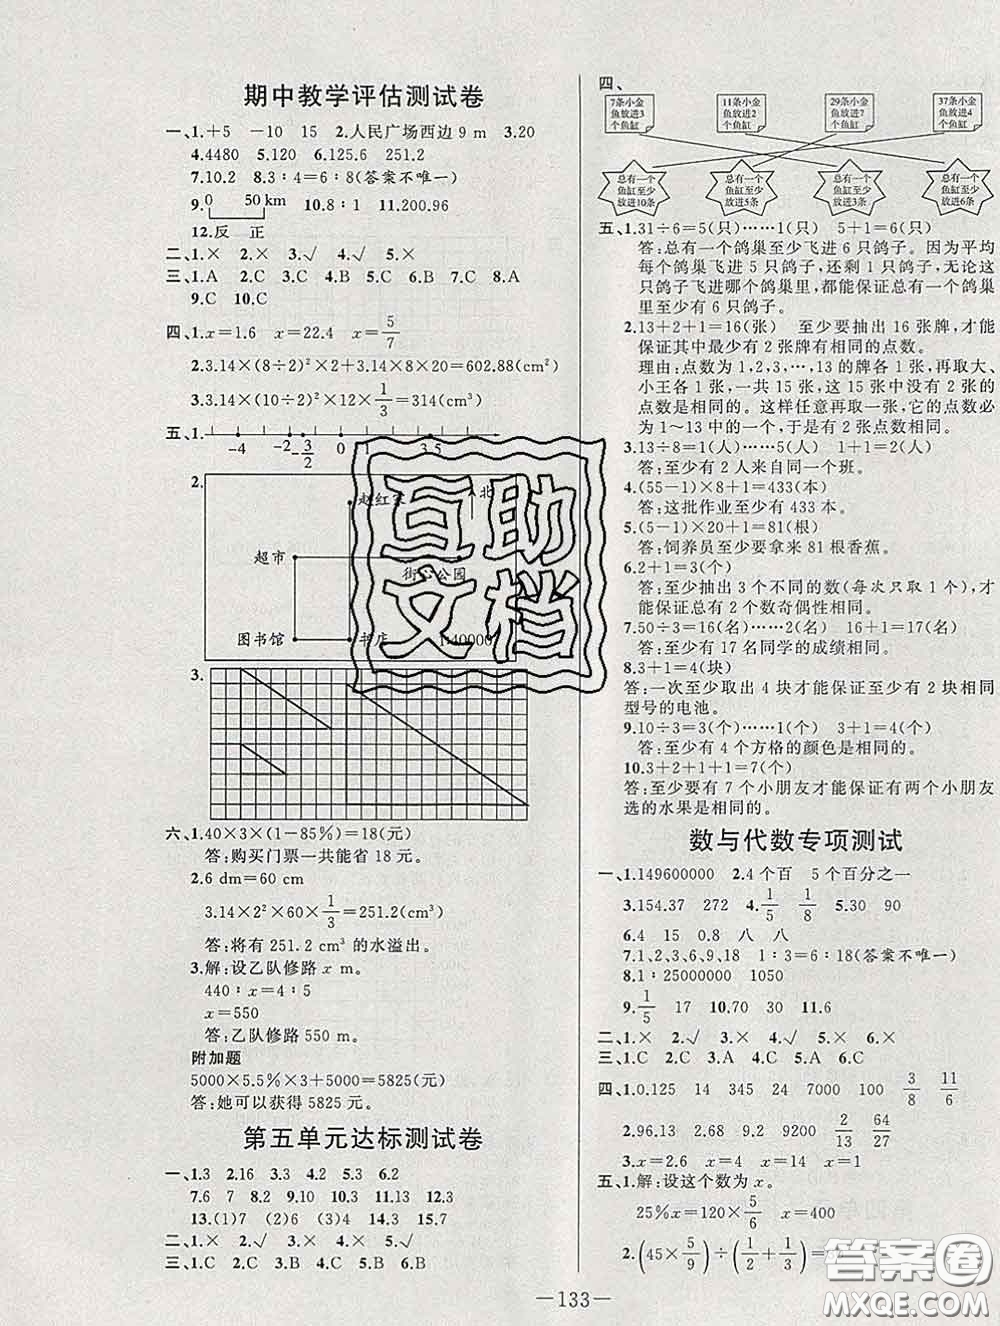 期中教学评估测试卷
一、1.+5 -10 15 2.人民广场西边9 m 3.20
4.4480 5.120 6.125.6 251.2
7.10.2 8.3∶4=6∶8(答案不唯一)
9. 0 50 km 10.8∶1 11.200.96
12.反 正
二、1.× 2.× 3.√ 4.√ 5.×
三、1.A 2.C 3.C 4.B 5.C 6.B 7.C 8.A
9.C 10.C
四、1.x=1.6 x=22.4 x=5/7
2.3.14×(8÷2)²×2+3.14×8×20=602.88(cm²)
3.3.14×(10÷2)²×12×1/3=314(cm³)
五、1. -4 -2 -3/2 0 1 3.5
2.
赵红家 北
超市
街心公园
图书馆 书店 1∶40000
3.
六、1.40×3×(1-85%)=18(元)
答:购买门票一共能省18元。
2.6 dm=60 cm
3.14×2²×60×1/3=251.2(cm³)
答:将有251.2 cm³的水溢出。
3.解:设乙队修路x m。
440∶x=4∶5
x=550
答:乙队修路550 m。
附加题
5000×5.5%×3+5000=5825(元)
答:她可以获得5825元。
第五单元达标测试卷
一、1.3 2.16 3.3 4.2 5.3 6.2
7.6 7 8.2 9.10 10.4 11.13 12.3
13.(1)7 (2)6 (3)4 14.13 15.7
二、1.× 2.√ 3.× 4.√ 5.×
三、1.C 2.A 3.B 4.B 5.C 6.B
四、
7条小金鱼放进3个鱼缸 11条小金鱼放进2个鱼缸 29条小金鱼放进7个鱼缸 37条小金鱼放进4个鱼缸
总有一个鱼缸至少放进10条 总有一个鱼缸至少放进5条 总有一个鱼缸至少放进3条 总有一个鱼缸至少放进6条
五、1.31÷6=5(只)……1(只) 5+1=6(只)
答:总有一个鸽巢至少飞进6只鸽子。因为平均
每个鸽巢飞进5只鸽子,还剩1只鸽子,无论这
只鸽子飞进哪个鸽巢里,都能保证总有一个鸽巢
里至少有6只鸽子。
2.13+2+1=16(张) 至少要抽出16张牌,才能
保证其中最少有2张牌有相同的点数。
理由:点数为1,2,3,…,13的牌各1张,再取大、
小王各1张,一共15张,这15张中没有2张的
点数是相同的。这样任意再取一张,它的点数必
为1~13中的一个,于是有2张点数相同。
3.13÷8=1(人)……5(人) 1+1=2(人)
答:至少有2人来自同一个班。
4.(55-1)×8+1=433(本)
答:这批作业至少有433本。
5.(5-1)×20+1=81(根)
答:饲养员至少要拿来81根香蕉。
6.2+1=3(个)
答:至少抽出3个不同的数(每次只取1个),才
能保证总有2个数奇偶性相同。
7.50÷3=16(名)……2(名) 16+1=17(名)
答:至少有17名同学的成绩相同。
8.3+1=4(块)
答:一次至少取出4块才能保证至少有2块相同
型号的电池。
9.10÷3=3(个)……1(个) 3+1=4(个)
答:至少有4个方格的颜色是相同的。
10.3+2+1+1=7(个)
答:至少要有7个小朋友才能保证有两个小朋友
选的水果是相同的。
数与代数专项测试
一、1.149600000 2.4个百 5个百分之一
3.154.37 272 4.1/5 1/8 5.30 90
6.4 15 0.8 八 八
7.1、2、3、6、9、18 1∶3=6∶18(答案不唯一)
8.1∶25000000 1050
9.1/5 17 10.70 30 11.6
二、1.× 2.√ 3.× 4.√ 5.× 6.×
三、1.C 2.C 3.A 4.C 5.A 6.C
四、1.0.125 14 345 24 7000 100 3/8 11/6
2.96.13 2.68 9.2 9200 2/13 64/27
3.x=2.6 x=4 x=14 x=1
五、1.解:设这个数为x。
25%x=120×5/6 x=400
2.(45×5/9)÷(1/2+1/3)=
—133—
互助文档
答案圈
MXQE.COM